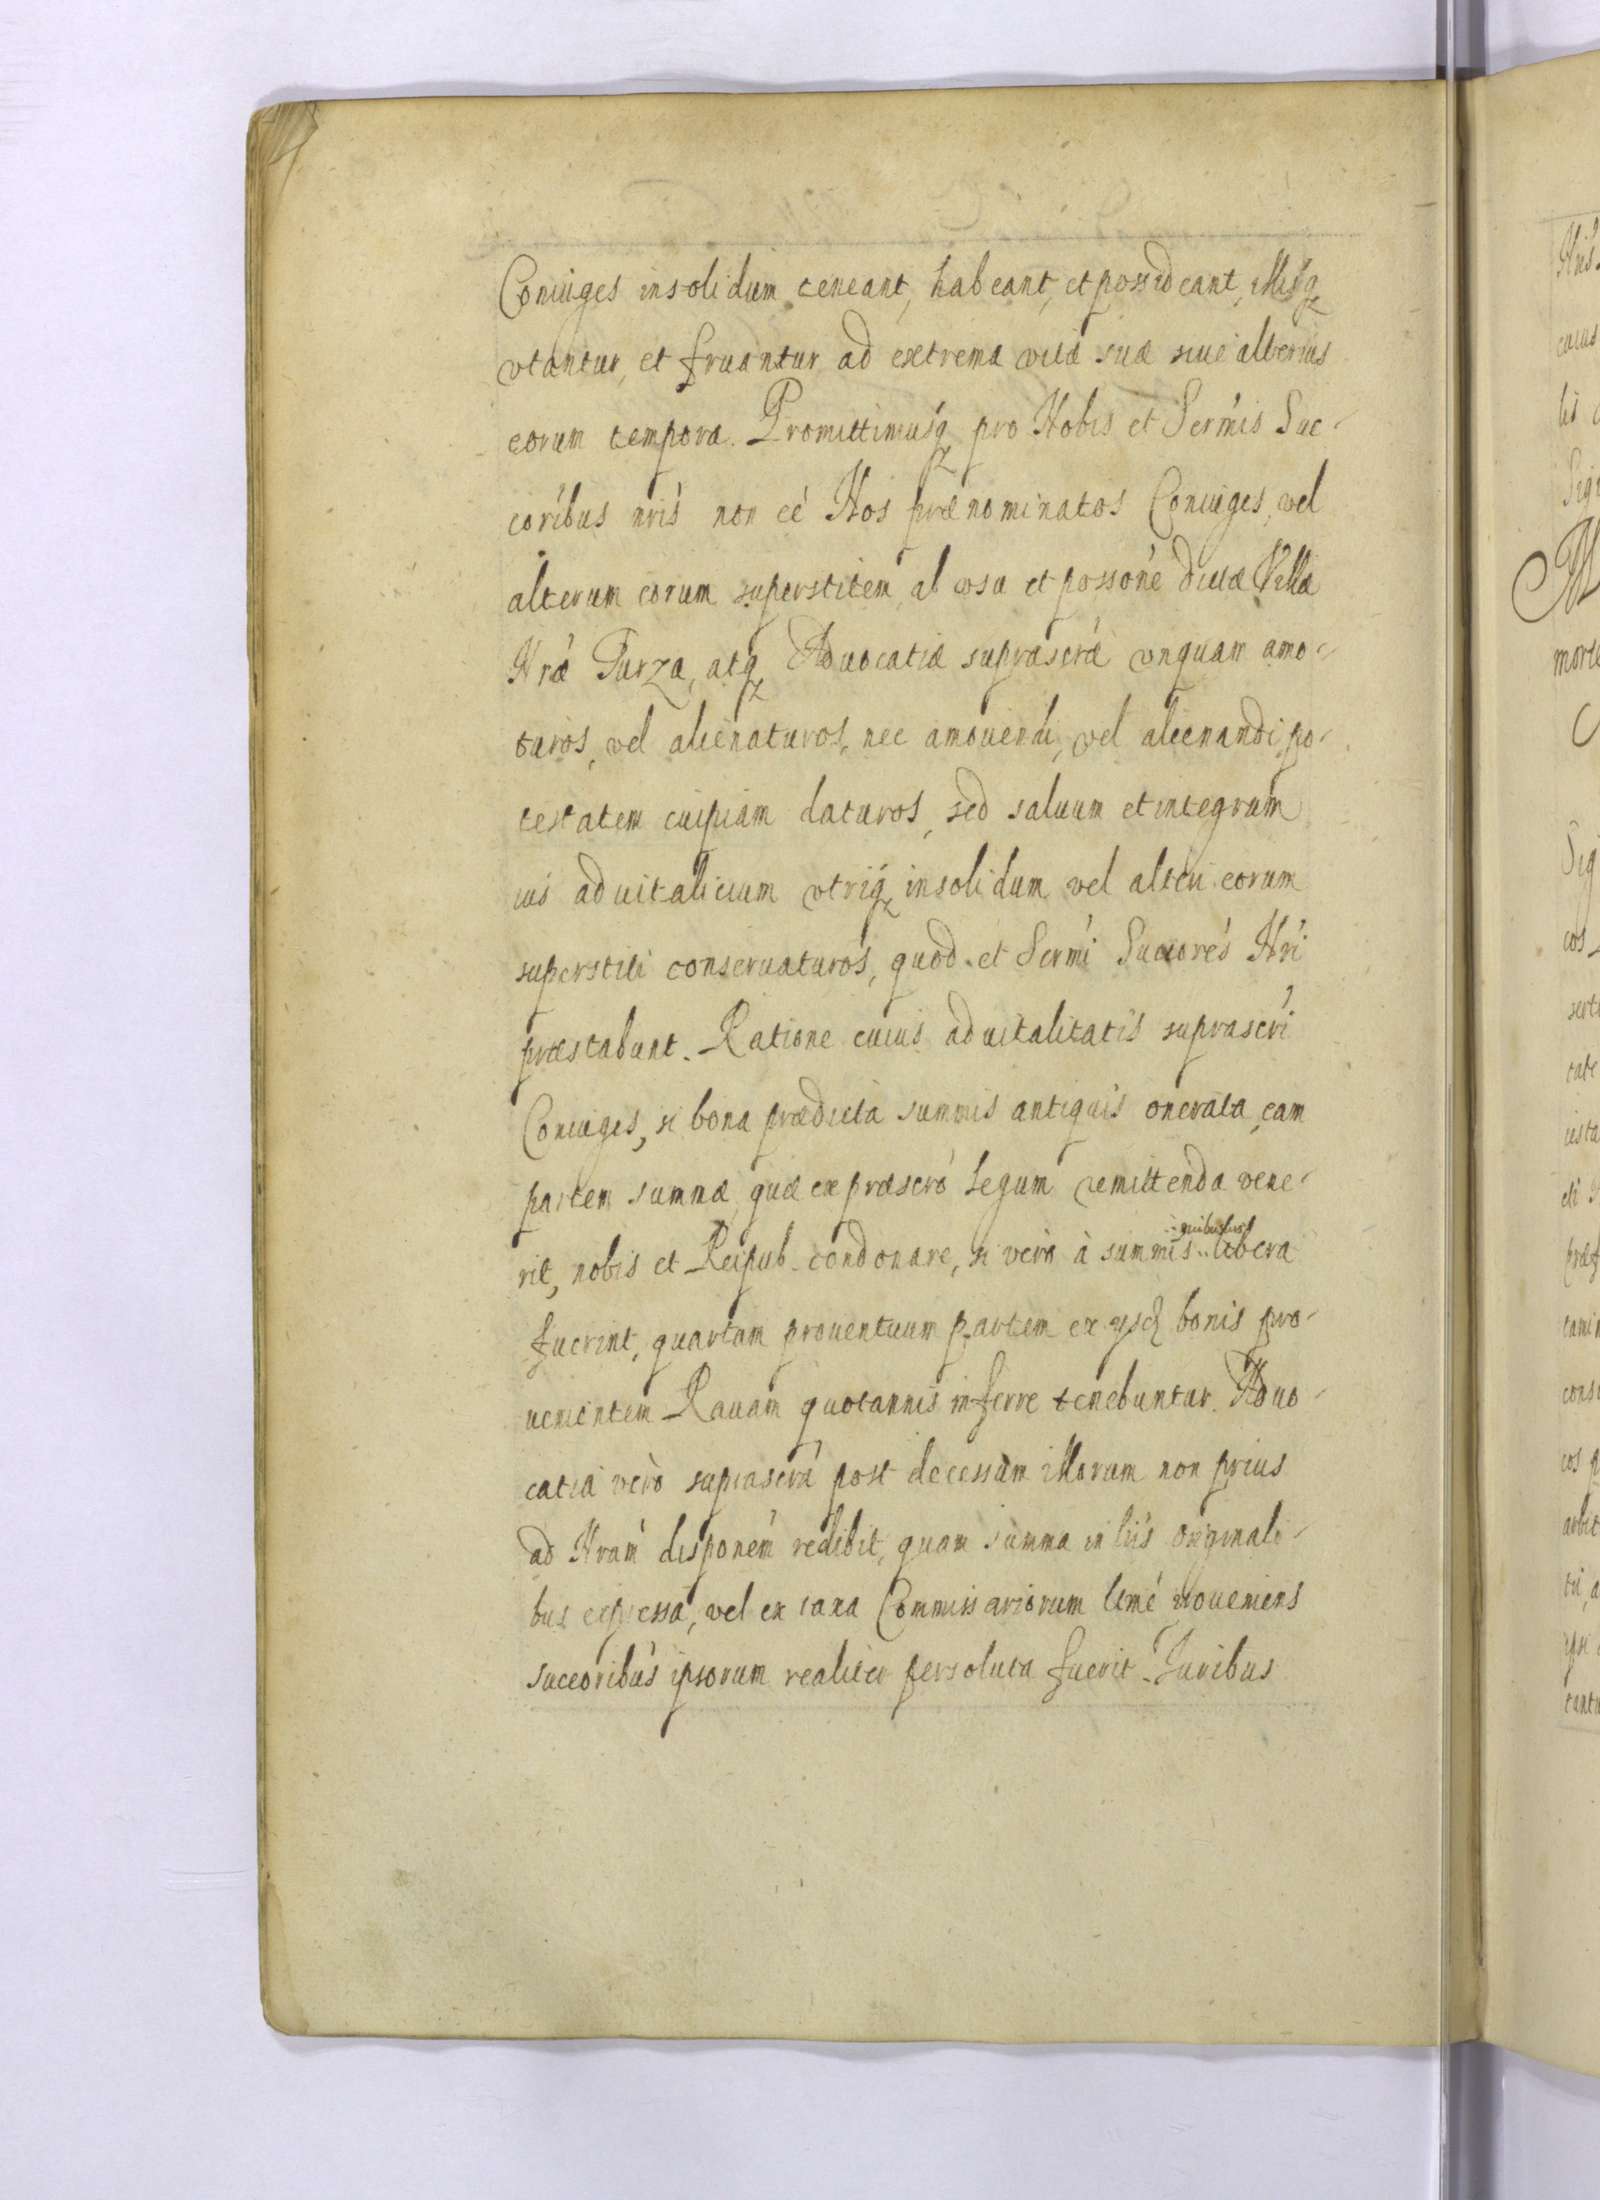 Coniuges insolidum teneant, habeant, et possideant, illisq́
vtantur, et fruantur ad extrema vitæ suæ siue alterius
eorum tempora. Promittimusq́ pro Nobis et Serm̃is Suc-
coribus nris non eé Nos prænominatos Coniuges, vel
alterum eorum superstitem, ab vsu et possoné dictæ Villæ
Nræ Turza, atq́ Aduocatiæ suprascræ vnquam amo-
turos, vel alienaturos, nec amouendi, vel alienandi po-
testatem cuipiam daturos, sed saluum et integrum
ius aduitalicium vtriq́ insolidum vel alteri eorum
superstiti conseruaturos, quod et Serm̃i Succores Nri
præstabunt. Ratione cuius aduitalitatis suprascri
Coniuges, si bona prædicta summis antiquis onerata, eam
partem summæ, quæ ex præscro legum remittenda vene-
rit, nobis et Reipub. condonare, si vero à summis quibusuis libera
fuerint, quartam prouentuum partem ex ijsd. bonis pro-
uenientem Rauam quotannis inferre tenebuntur. Aduo-
catia vero suprascra post decessum illorum non prius
ad Nram disponem redibit, quam summa in lris originali-
bus expressa, vel ex taxa Commissariorum ltmé proueniens
succoribus ipsorum realiter persoluta fuerit. Iuribus